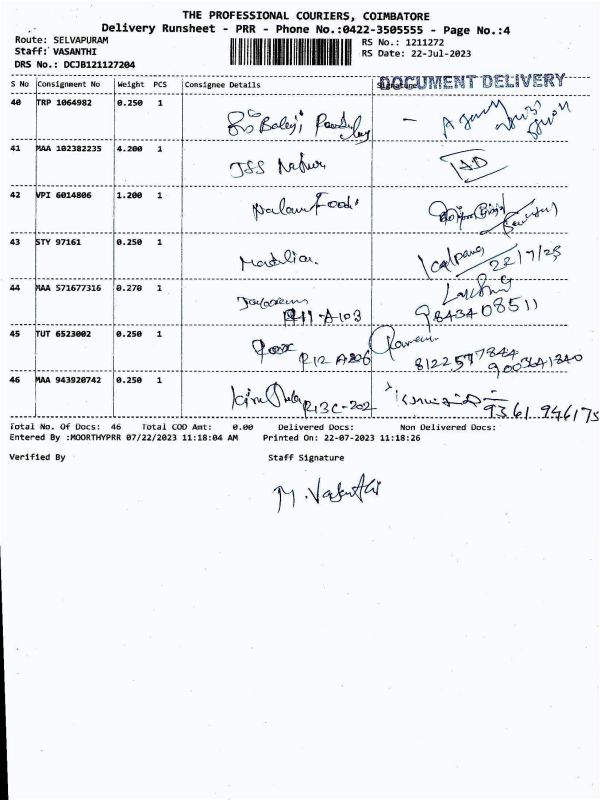 THE PROFESSIONAL COURIERS, COIMBATORE
Delivery Runsheet - PRR - Phone No.:0422-3505555 - Page No.:4
Route: SELVAPURAM RS No.: 1211272
Staff: VASANTHI RS Date: 22-Jul-2023
DRS No.: DCJB121127204
DOCUMENT DELIVERY
S No Consignment No Weight PCS Consignee Details Signature
40 TRP 1064982 0.250 1
Balaji
41 MAA 102382235 4.200 1
JSS
42 VPI 6014806 1.200 1
Nalam Foods
43 STY 97161 0.250 1
22/7/23
44 MAA 571677316 0.270 1
R11-A103 9843408511
45 TUT 6523002 0.250 1
R12 A206 8122577844
9003641840
46 MAA 943920742 0.250 1
R13C-202 9361946175
Total No. Of Docs: 46 Total COD Amt: 0.00 Delivered Docs: Non Delivered Docs:
Entered By :MOORTHYPRR 07/22/2023 11:18:04 AM Printed On: 22-07-2023 11:18:26
Verified By Staff Signature
M. Vasanthi